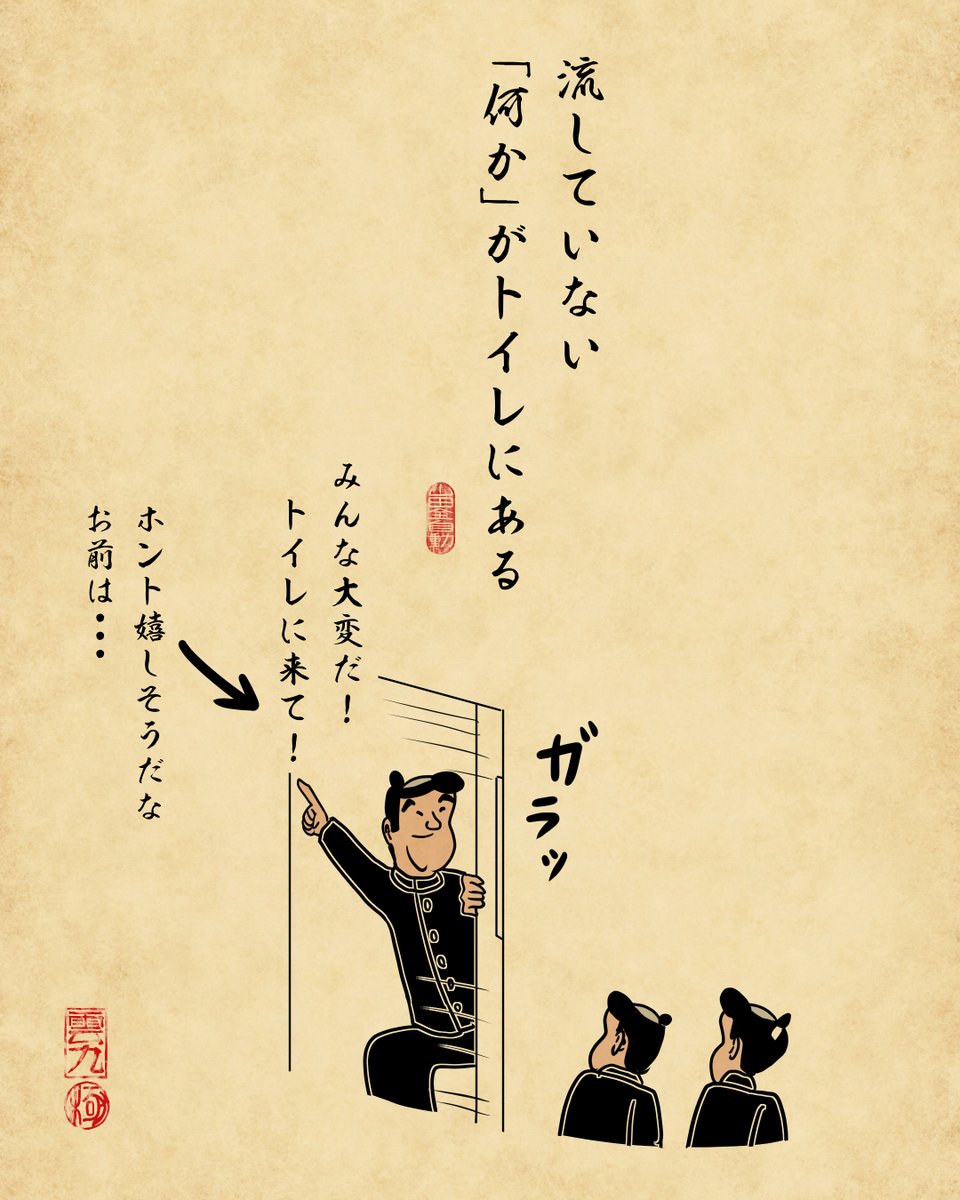 流していない
「何か」がトイレにある
みんな大変だ！
トイレに来て！
ホント嬉しそうだな
お前は・・・
ガラッ